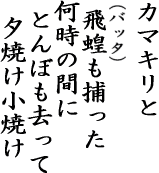 カマキリと
飛蝗も捕った
(バッタ)
何時の間に
とんぼも去って
夕焼け小焼け